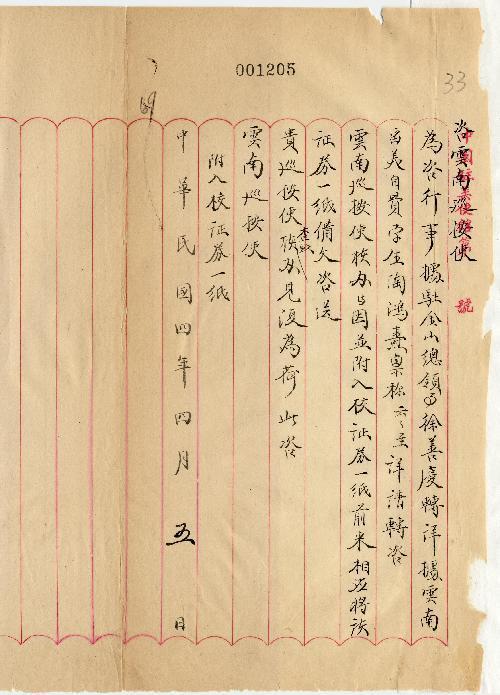 001205
33
69
咨雲南巡按使
號
為咨行事據駐金山總領事徐善慶轉詳據雲南
留美自費學生陶鴻燾稟称云云至詳請轉咨
雲南巡按使核办等因並附入校証券一紙前来相应將該
証券一紙備文咨送
貴巡按使查照核办見復為荷此咨
雲南巡按使
附入校証券一紙
中華民國四年四月五日